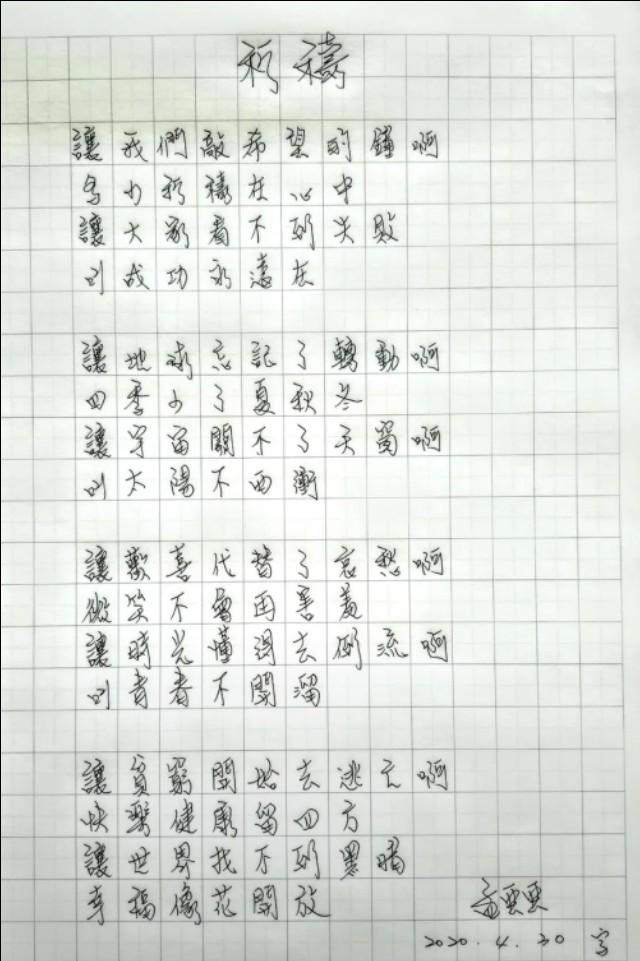 祈禱
讓我們敲希望的鐘啊
多少祈禱在心中
讓大家看不到失敗
叫成功永遠在
讓地球忘記了轉動啊
四季少了夏秋冬
讓宇宙關不了天窗啊
叫太陽不西衝
讓歡喜代替了哀愁啊
微笑不會再害羞
讓時光懂得去倒流啊
叫青春不開溜
讓貧窮開始去逃亡啊
快樂健康留四方
讓世界找不到黑暗
幸福像花開放
2020.4.30 字